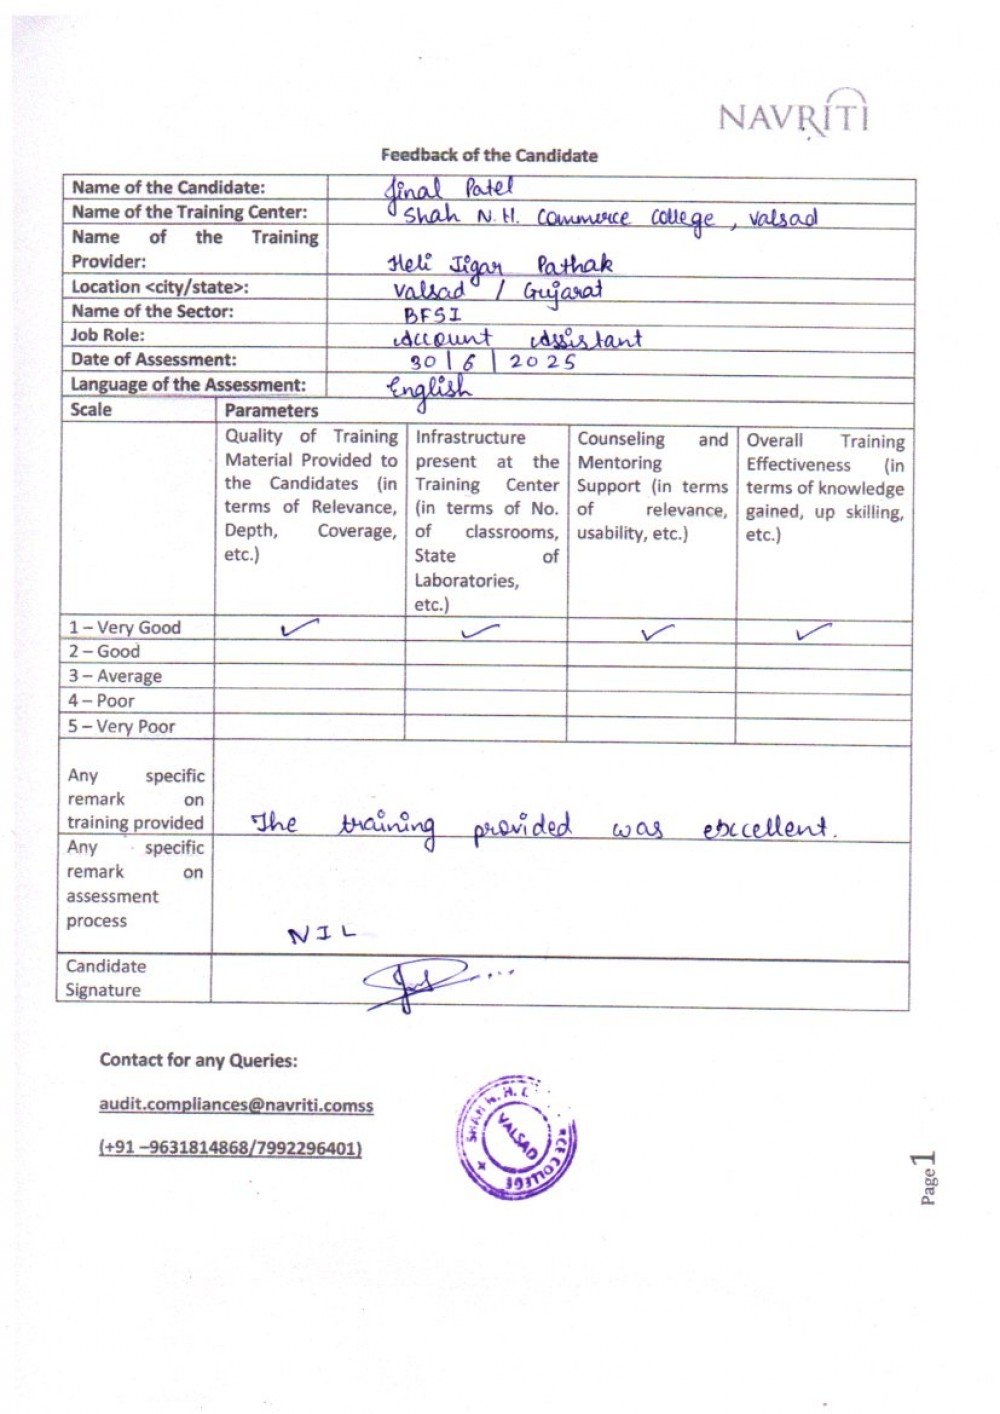 NAVRITI
Feedback of the Candidate
Name of the Candidate: Jinal Patel
Name of the Training Center: Shah N.H. Commerce College, Valsad
Name of the Training
Provider: Heli Jigar Pathak
Location <city/state>: Valsad / Gujarat
Name of the Sector: BFSI
Job Role: Account Assistant
Date of Assessment: 30 | 6 | 2025
Language of the Assessment: English
Scale Parameters
Quality of Training
Material Provided to
the Candidates (in
terms of Relevance,
Depth, Coverage,
etc.)
Infrastructure
present at the
Training Center
(in terms of No.
of classrooms,
State of
Laboratories,
etc.)
Counseling and
Mentoring
Support (in terms
of relevance,
usability, etc.)
Overall Training
Effectiveness (in
terms of knowledge
gained, up skilling,
etc.)
1 – Very Good ✓ ✓ ✓ ✓
2 – Good
3 – Average
4 – Poor
5 – Very Poor
Any specific
remark on
training provided The training provided was excellent.
Any specific
remark on
assessment
process NIL
Candidate
Signature
Contact for any Queries:
audit.compliances@navriti.comss
(+91 –9631814868/7992296401)
SHAH N. H. C
RCE COLLEGE
VALSAD
Page 1